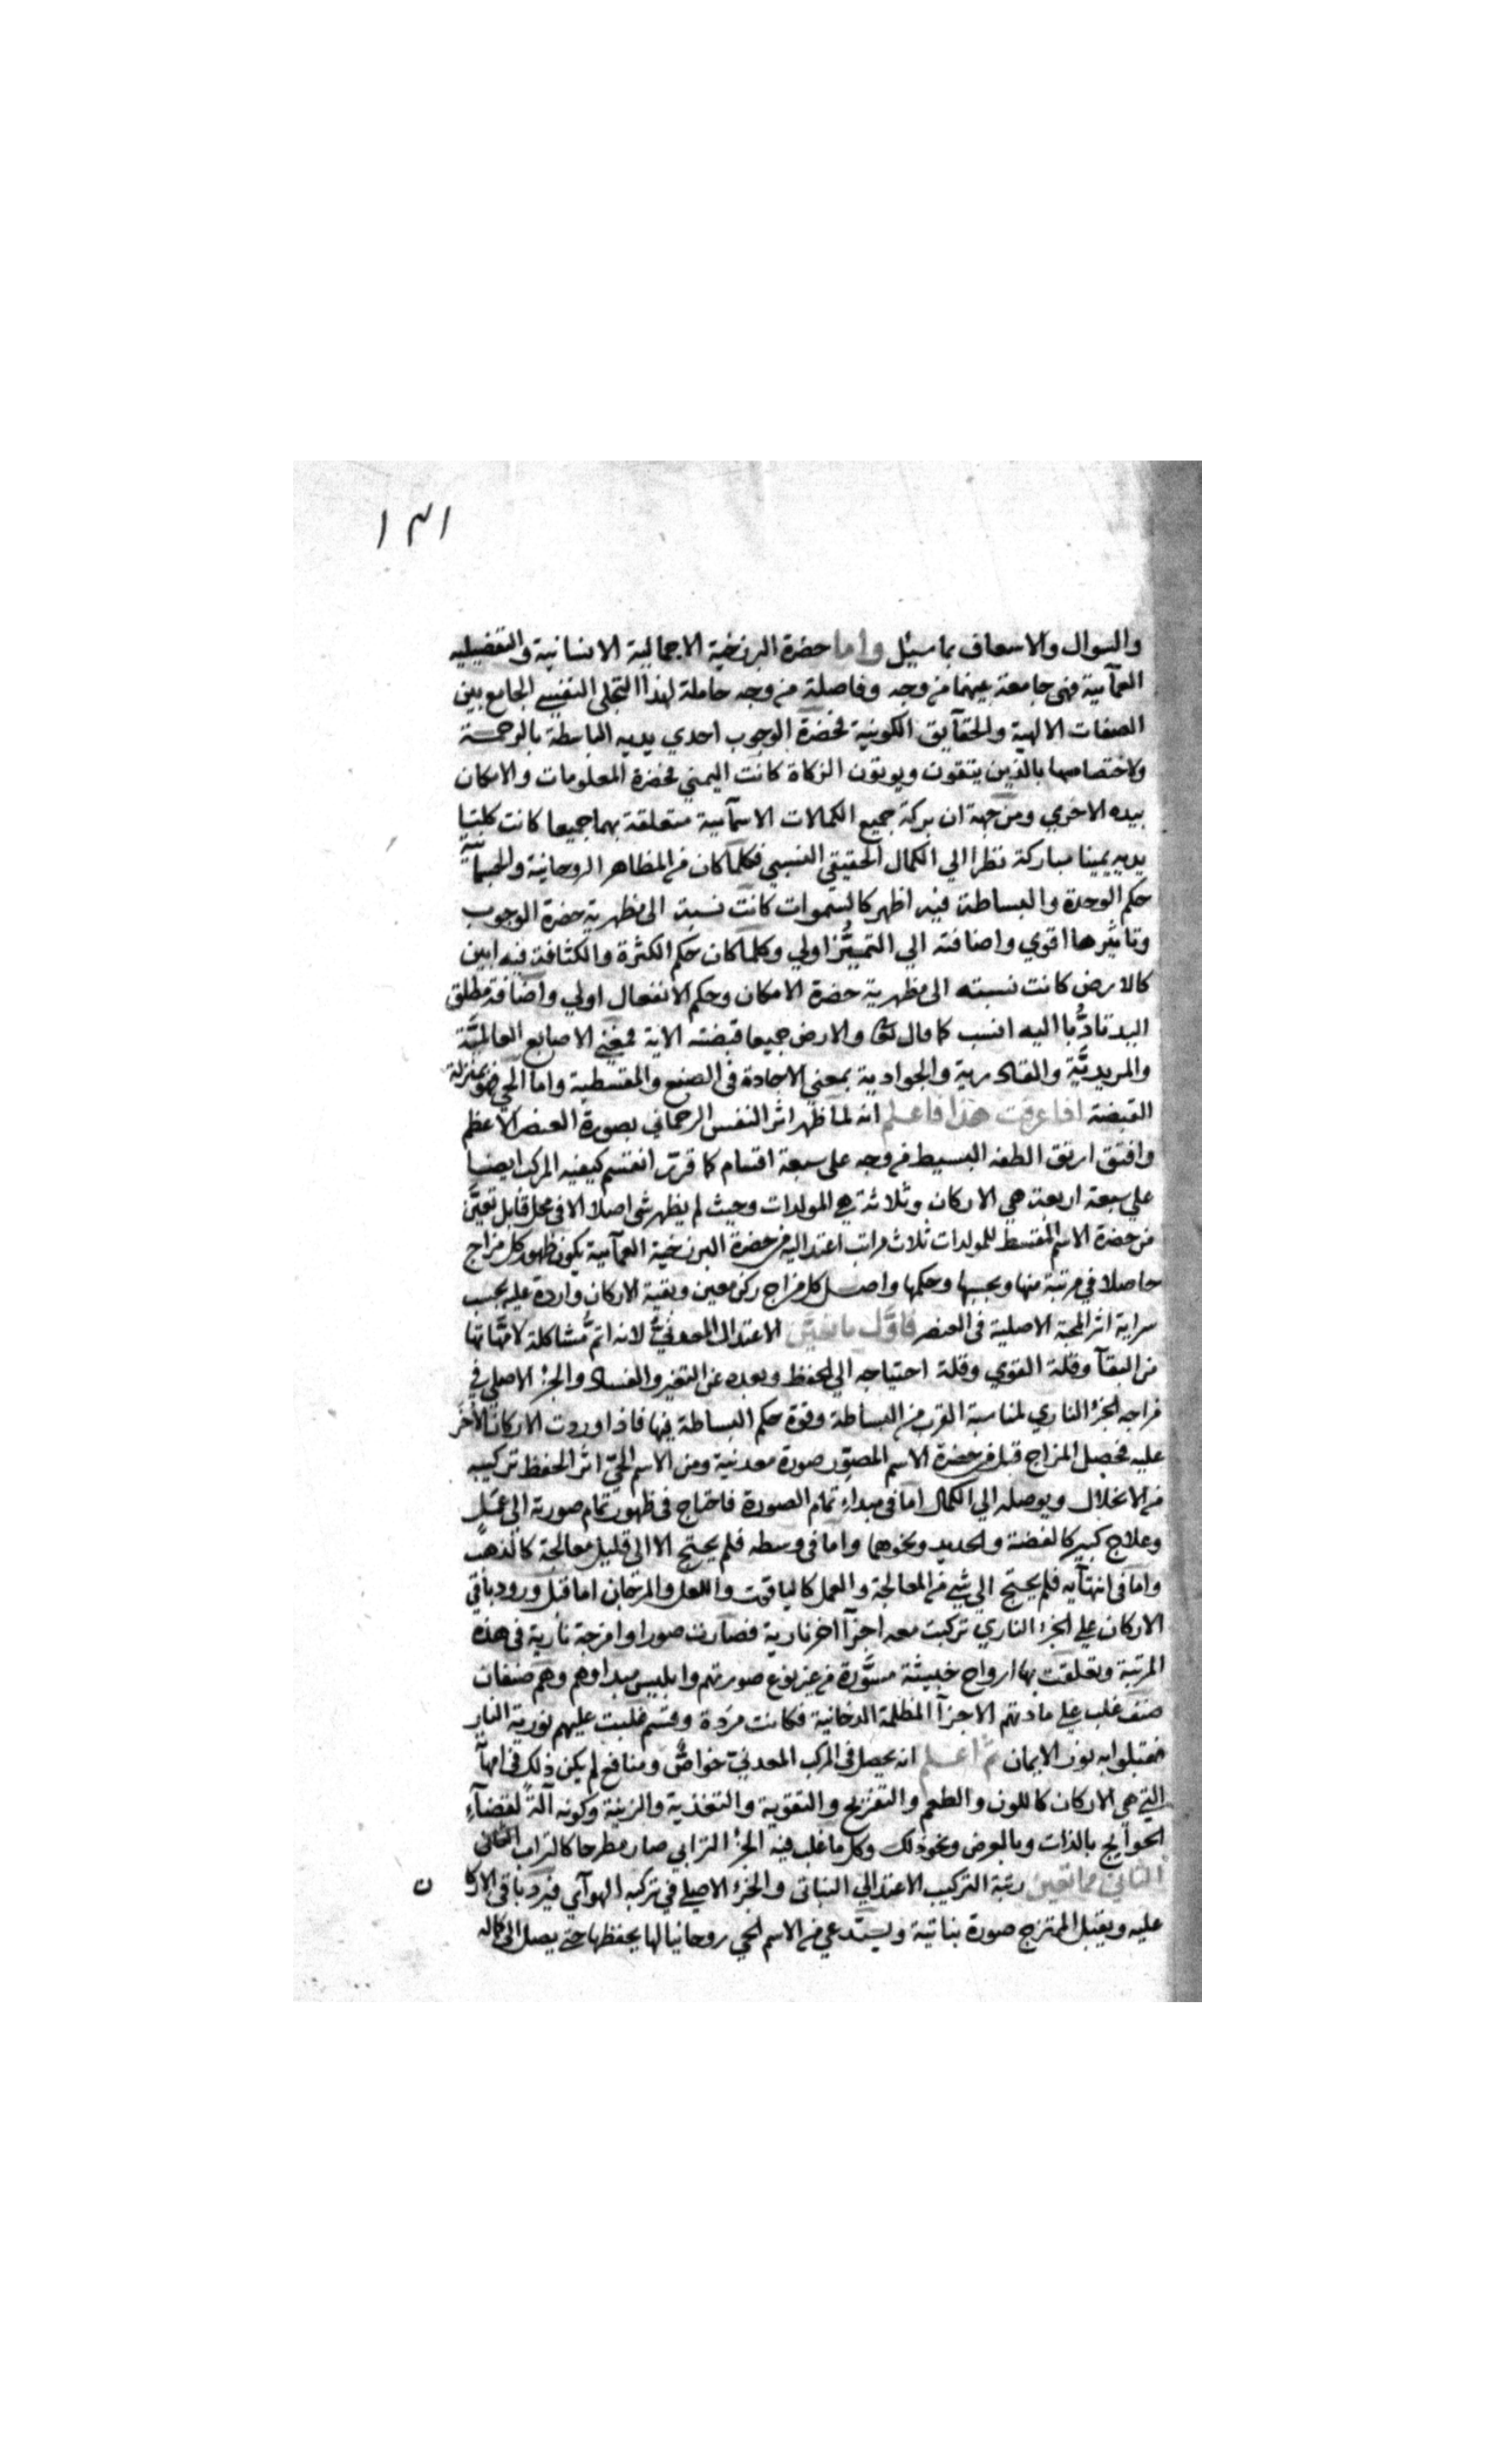 ١٣١
والسوال والاسعاف بما سيئل واما حضرة البرزخية الاجمالية الانسانية والتفضيليه
العمآيية فهى جامعة بينهما من وجه وفاصلة من وجه حاملة لهذا التجلى النفيسى الجامع بين
الصفات الالهية والحقآيق الكونية فحضرة الوجوب احدي يديه الباسطة بالرحمة
ولاختصاصها بالذين يتقون ويوتون الزكاة كانت اليمني فحضرة المعلومات والامكان
بيده الاخري ومن جهة ان بركة جميع الكمالات الاسمآيية متعلقة بهما جميعا كانت كلتيا
يديه يمينا مباركة نظرا الي الكمال الحقيقي النسبي فكلما كان من المظاهر الروحانية والجسمآنية
حكم الوحدة والبساطة فيه اظهر كالسموات كانت نسبة الى مظهرية حضرة الوجوب
وتاثيرها اقوي واضافته الي التميُّز اولي وكلما كان حكم الكثرة والكثافة فيه ابين
كالارض كانت نسبته الى مظهرية حضرة الامكان وحكم الانفعال اولي واضافة مطلق
اليد تادُّبا اليه انسب كما قال تعا والارض جميعا قبضته الاية فمعنى الاصابع العالميَّة
والمريديَّة والقادرية والجوادية بمعني الاجادة فى الصنع والمقسطية واما الحي فهو بمنزلة
القبضة اذا عرفت هذا فاعلم انه لما ظهر اثر النفس الرحماني بصورة العنصر الاعظم
وافتق ارتق الطفه البسيط من وجه على سبعة اقسام كما قرر انقسم كيفيه المركب ايضا
علي سبعة اربعة هي الاركان وثلاثة هي المولدات وحيث لم يظهر شى اصلا الا فى محل قابل تعيَّن
من حضرة الاسم المقسط للمولدات ثلاث مراتب اعتداليه من حضرة البرزخية العمآيية يكون ظهور كل مزاج
حاصلا في مرتبة منها وبحسبها وحكمها واصل كل مزاج ركن معين وبقية الاركان واردة عليه بحسب
سراية اثر المحبة الاصلية فى العنصر فاوَّل ما تعيَّن الاعتدال المعدنيُّ لانه اتمُّ مشاكلة لامَّهاتها
من البقآ وقلة القوي وقلة احتياجه الي الحفظ وبعده عن التغير والفساد والجزٔ الاصلي في
مزاجه الجزٔ الناري لمناسبة القرب من البساطة وقوة حكم البساطة فيها فاذا وردت الاركان الاخر
عليه فحصل المزاج قبل من حضرة الاسم المصوِّر صورة معدنية ومن الاسم الحيّ اثر الحفظ تركيبه
من الانحلال ويوصله الي الكمال اما فى مبداء تمام الصورة فاحتاج فى ظهور تمام صورته الى عمل
وعلاج كبير كالفضة والحديد ونحوهما واما فى وسطه فلم يحتج الا الى قليل معالجة كالذهب
واما فى انتهآيه فلم يحتج الي شي من المعالجة والعمل كالياقوت واللعل والمرجان اما قبل ورود باقي
الاركان علي الجزٔ الناري تركبت معه اجزآ اخر نارية فصارت صورا وامزجة نارية فى هذه
المرتبة وتعلقت بها ارواح خبيثة مسوَّرة من غير نوع صورتهم وابليس مبداوهم وهم صنفان
صنف غلب على مادتهم الاجزآ المظلمة الدخانية فكانت مردة وقسم غلبت عليهم نورية النار
فقبلوا به نور الايمان ثم اعلم انه يحصل فى المركب المعدني خواصٌّ ومنافع لم يكن ذلك فى امهآ
التي هي الاركان كاللون والطعم والتفريح والتقوية والتغذية والزينة وكونه آلةً لقضآء
الحوايج بالذات وبالعرض ونحو ذلك وكل ما غلب فيه الجزٔ الترابي صار مطرحا كالتراب الثانى
الثاني مما تعين رتبة التركيب الاعتدالي النباتى والجزٔ الاصلي في تركبه الهوآي فيرد باقي الاركا ن
عليه ويقبل الممتزج صورة نباتية ويستدعي من الاسم الحي روحانيا لها يحفظها حتى يصل الى كماله